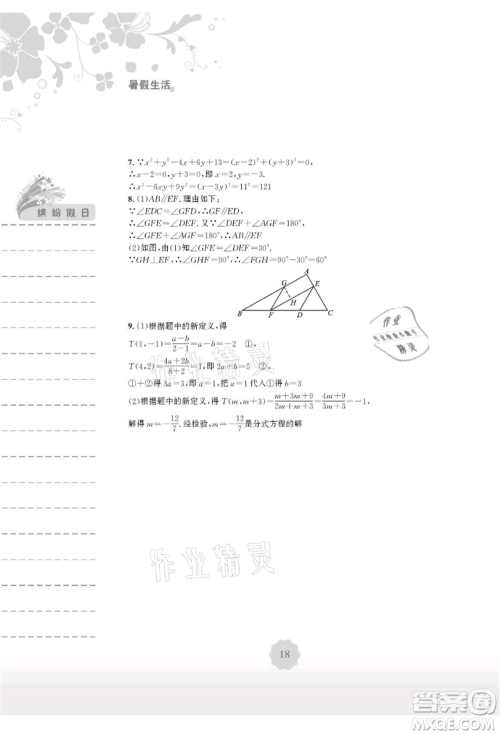 暑假生活
缤纷假日
7. ∵x²+y²-4x+6y+13=(x-2)²+(y+3)²=0,
∴x-2=0,y+3=0,即x=2,y=-3.
∴x²-6xy+9y²=(x-3y)²=11²=121
8. (1)AB∥EF. 理由如下:
∵∠EDC=∠GFD,∴GF∥DE. ∴∠GFE=∠DEF.
∵∠DEF=∠AGF,∴∠GFE=∠AGF. ∴AB∥EF
(2)如图,由(1)知∠GFE=∠DEF=30°.
∵GH⊥EF,∴∠GHF=90°,∴∠FGH=90°-30°=60°
A
G
E
H
B
F
D
C
9. (1)根据题中的新定义,得
T(1,-1)=(a-b)/(2-1)=a-b=-2 ①,
T(4,2)=(4a+2b)/(8+2)=1,即2a+b=5 ②,
①+②得3a=3,即a=1. 把a=1代入①得b=3
(2)根据题中的新定义,得T(m,m+3)=(m+3m+9)/(2m+m+3)=(4m+9)/(3m+3)=-1,
解得m=-12/7. 经检验,m=-12/7是分式方程的解
作业精灵
作业
精灵
作业精灵
18
作业精灵